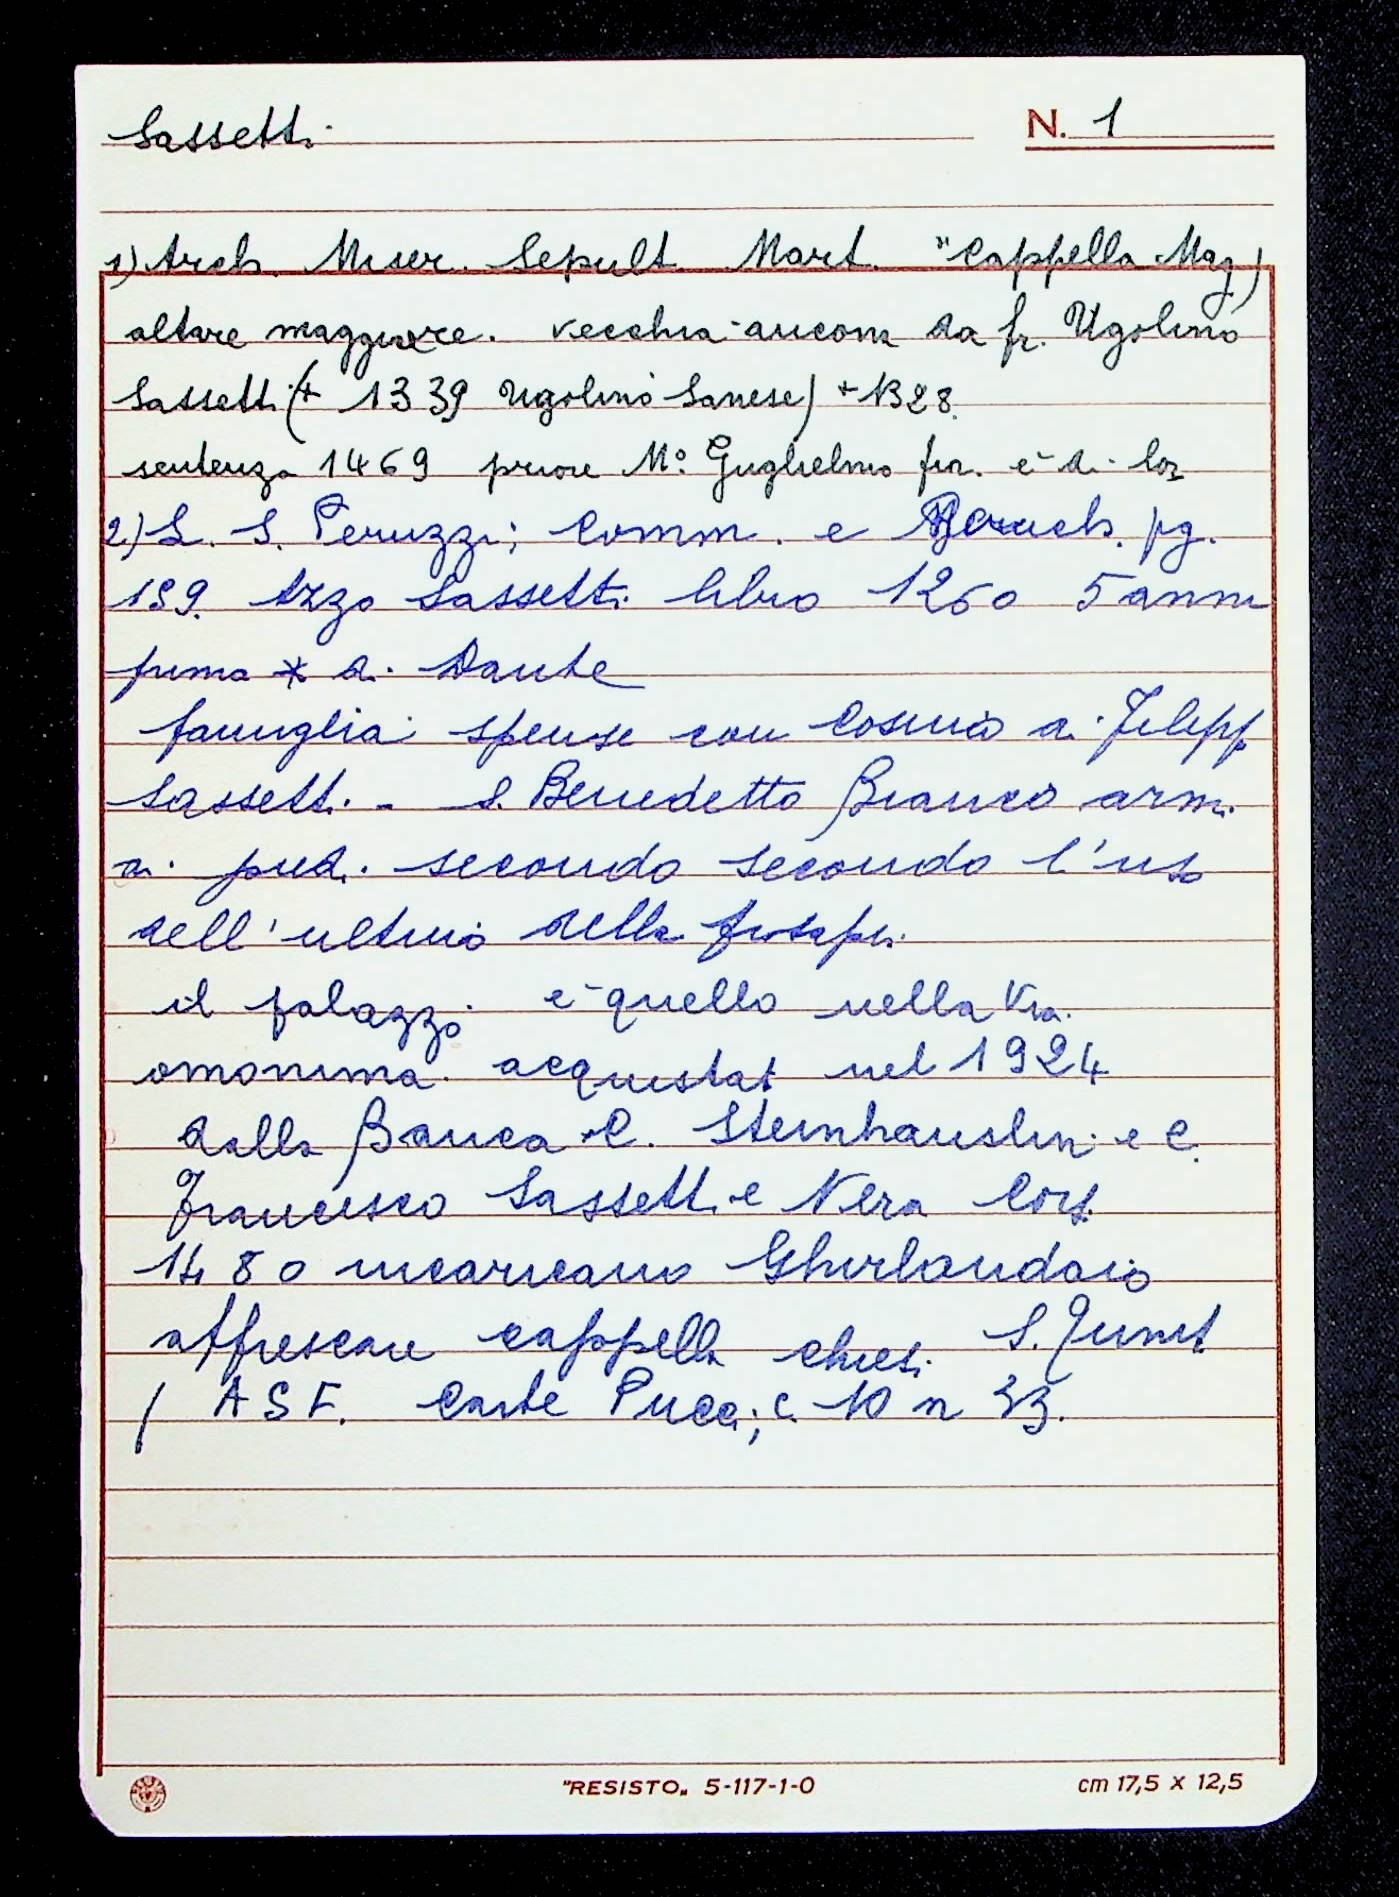 Sassetti
N. 1
1) Arch. Miser. Sepult. Mort. "Cappella Mag)
altare maggiore. vecchia ancona da fr. Ugolino
Sassetti (+ 1339 Ugolino Sanese) + 1328.
sentenza 1469 priore M.º Guglielmo fior. è di lor
2) L. S. Peruzzi; Comm. e Banch. pg.
159. Azzo Sassetti libro 1260 5 anni
prima * di Dante
famiglia spense con Cosimo di Filipp
Sassetti. - S. Benedetto Bianco arm.
di secondo secondo l'uso
dell'ultimo della prosapi.
il palazzo è quello nella Via
omonima. acquistat nel 1924
dalla Banca C. Steinhauslin e C.
Francesco Sassetti e Nera Cors.
1480 incaricano Ghirlandaio
affrescare cappella chies. S. Trinit
/ A S F. Carte Pucci; c. 10 n 33.
"RESISTO„ 5-117-1-0
cm 17,5 x 12,5